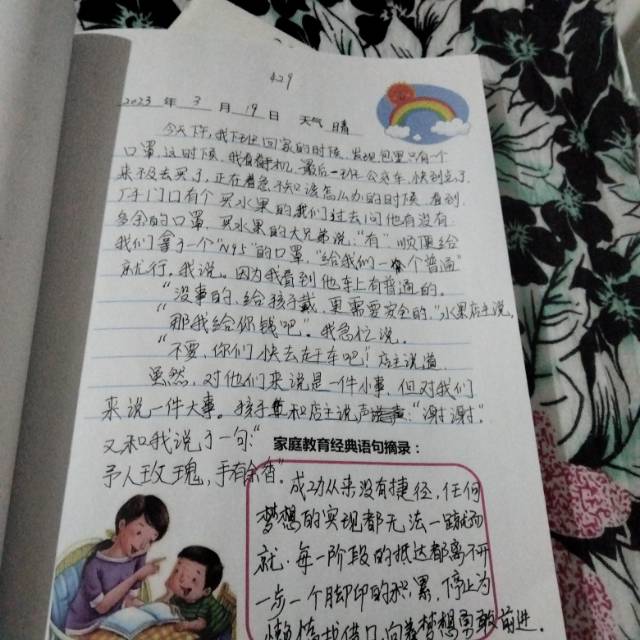 429
2023 年 3 月 19 日 天气 晴
今天下午,我下班回家的时候,发现包里只有一个
口罩这时候,我看手机,最后一班公交车,快到点了,
来不及去买了,正在着急不知该怎么办的时候,看到
门口有个买水果的我们过去问他有没有
多余的口罩,买水果的大兄弟说:“有”顺手给
我们拿了一个“N95”的口罩,“给我们一个普通
就行,我说。因为我看到他车上有普通的。
“没事的,给孩子戴,更需要安全的。”水果店主说,
“那我给你钱吧”。我急忙说。
“不要,你们快去赶车吧!”店主说道
虽然,对他们来说是一件小事,但对我们
来说一件大事。孩子和店主说声“谢谢”.
又和我说了一句:“
予人玫瑰,手有余香”.
家庭教育经典语句摘录:
成功从来没有捷径,任何
梦想的实现都无法一蹴而
就,每一阶段的抵达都离不开
一步一个脚印的积累,停止为
懒惰找借口,向着梦想勇敢前进.